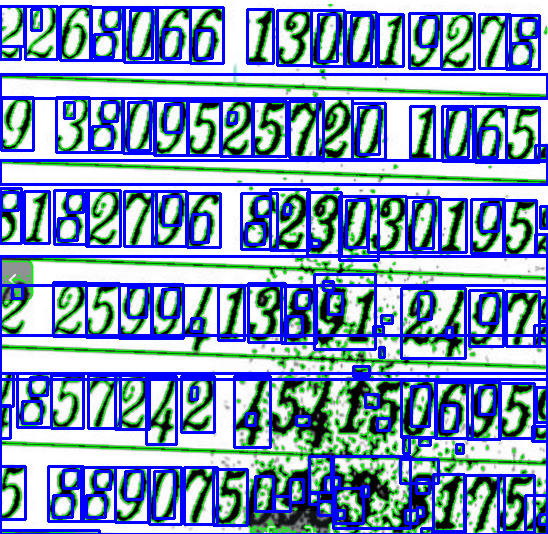 2268066 130019278
9 3809525720 1065
8182796 823030195
2 2599413891 2497
857242 454150695
5 889075 175